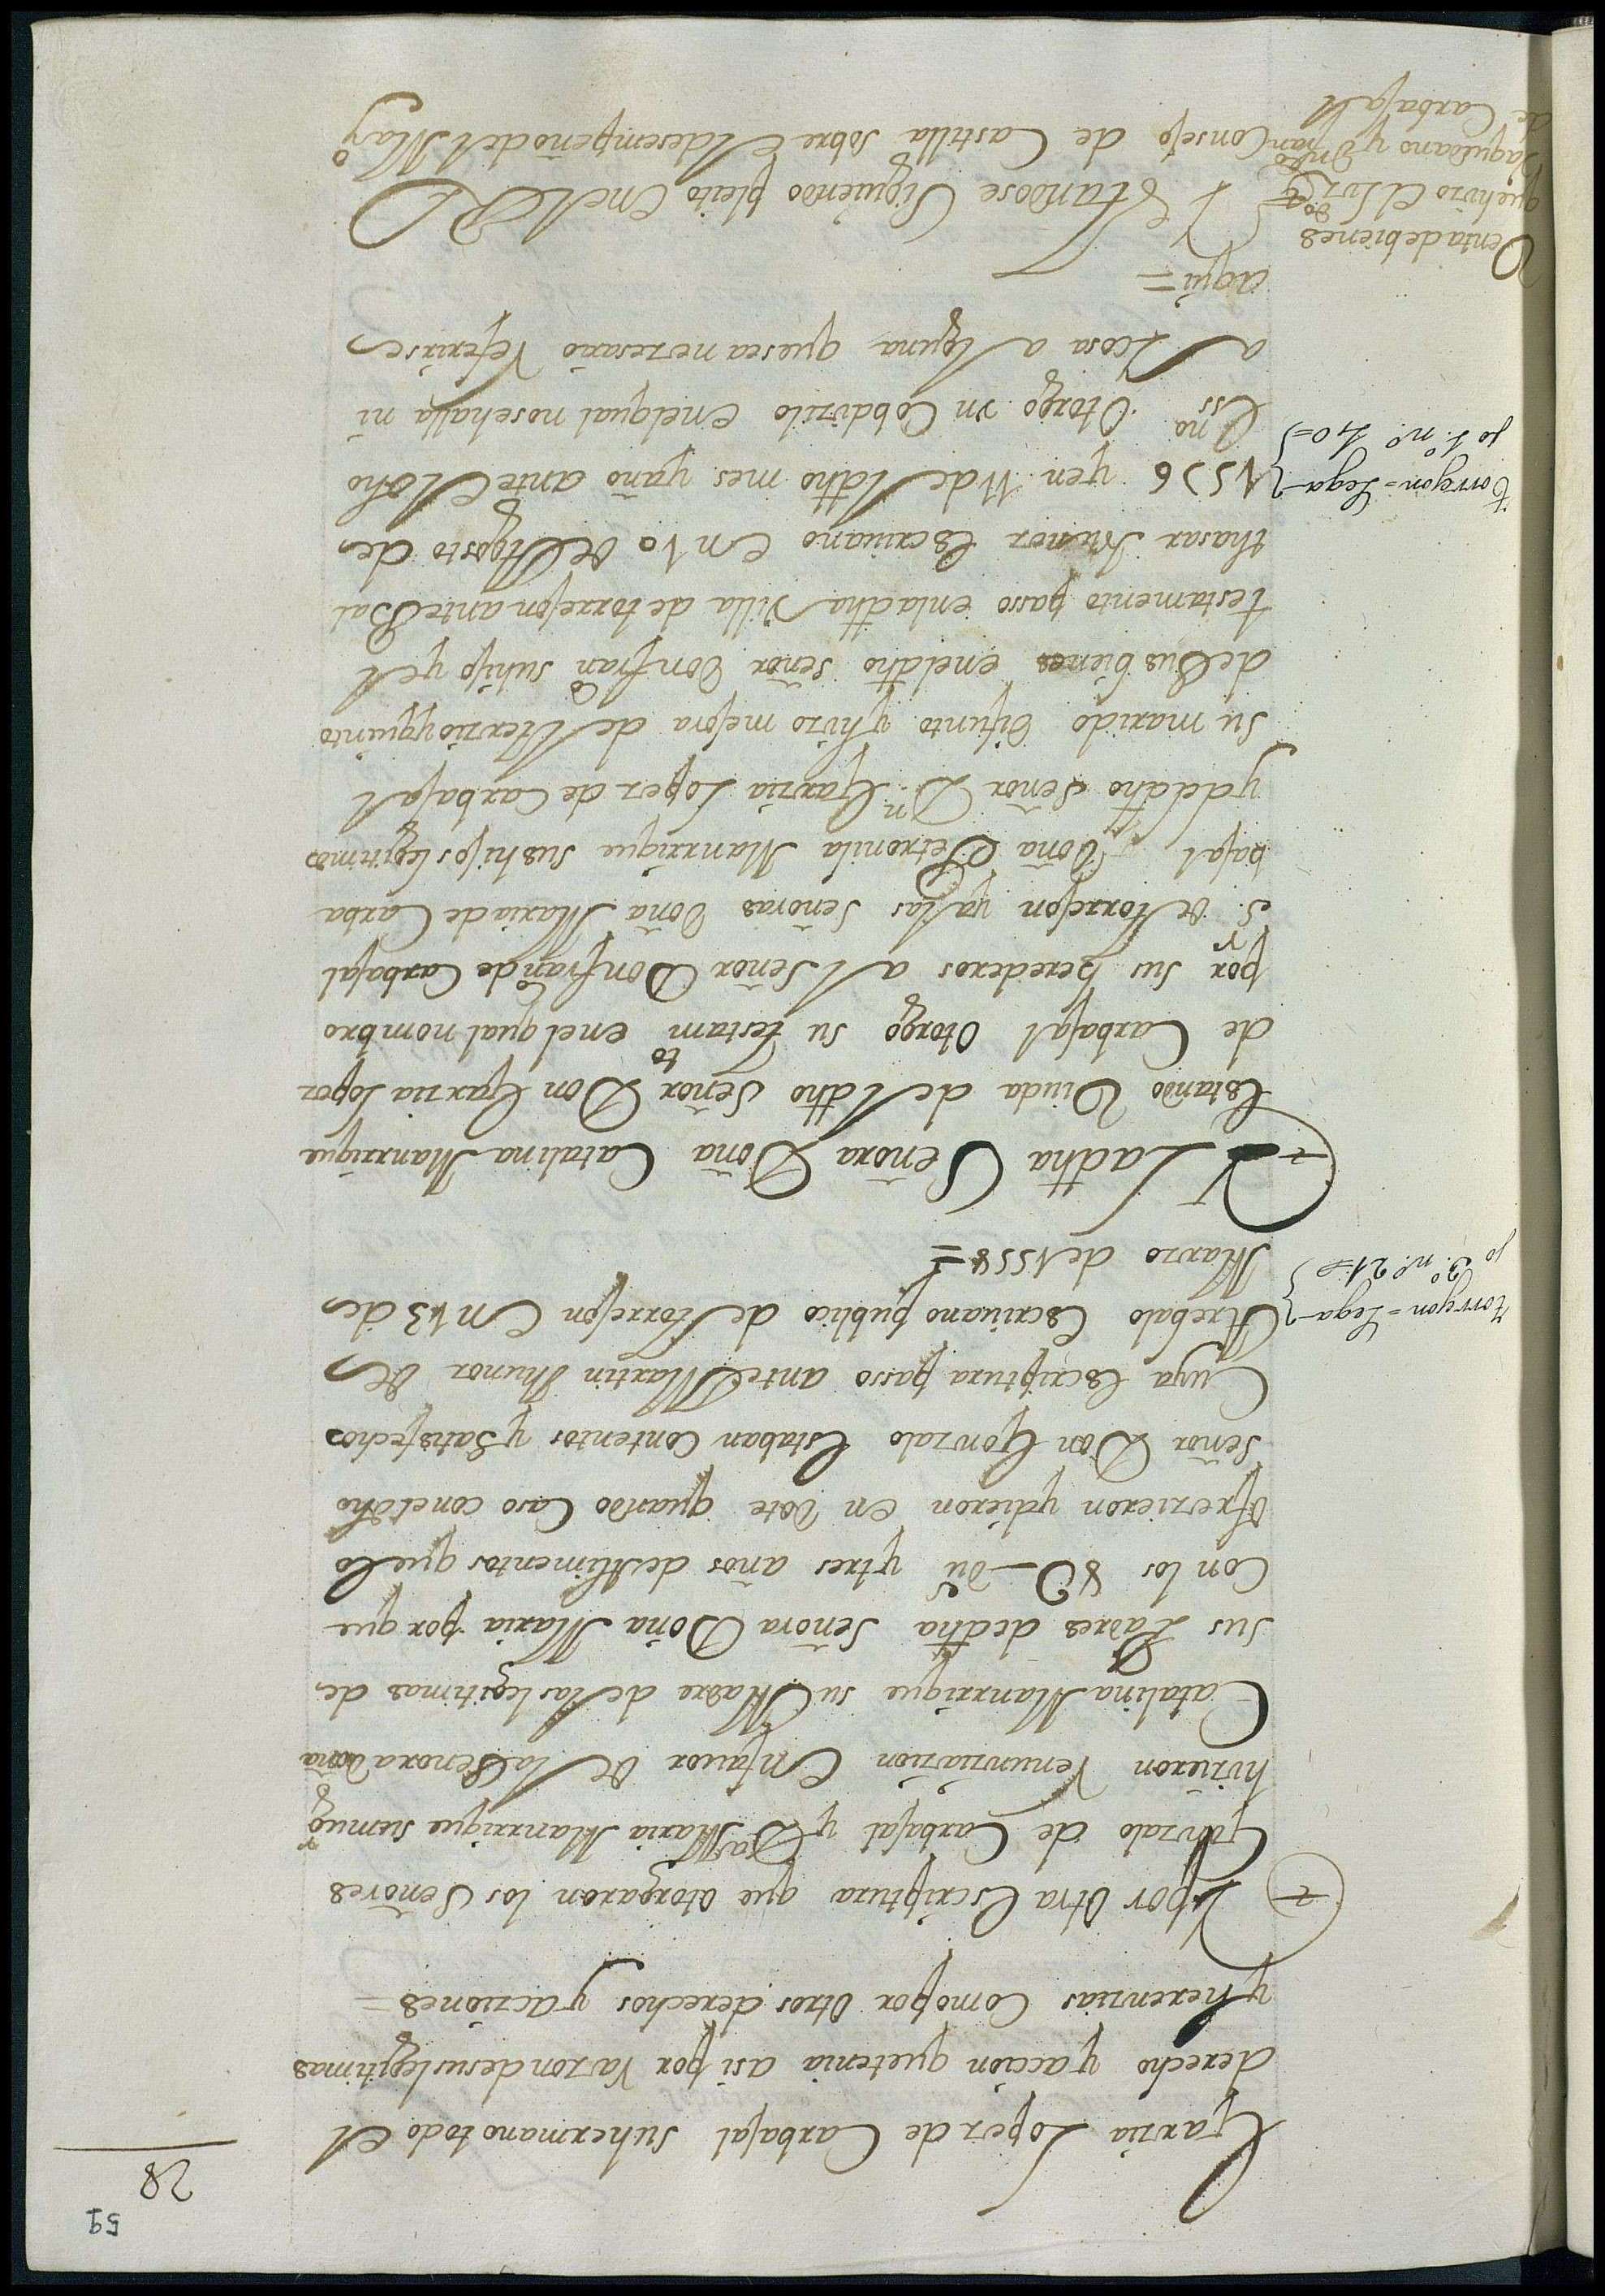 59
28
Garzia Lopez de Carbajal suhermano todo el
derecho y accion quetenia asi por Razon desus legitimas
y herenzias Como por otros derechos y acziones =
Y por Otra Escriptura que otorgaron los Señores
Gonzalo de Carbajal y Da Maria Manrrique sumugr
hizieron Renunziazion En fauor de la Señora doña
Catalina Manrrique su Madre de las legitimas de
sus Padres dedha Señora Doña Maria por que
Con los 8D dus y tres años de Alimentos que lo
ofrezieron y dieron en dote quando Caso con el dho
Señor Don Gonzalo Estaban Contentos y Satisfechos
Cuya Escriptura passo ante Martin Munoz de
Arebalo Escriuano publico de torrejon En 13 de
Marzo de 1558 =
torrejon = Lega-
jo 3º nº 21 =
Y La dha Señora Doña Catalina Manrrique
Estando Viuda del dho Señor Don Garzia Lopez
de Carbajal Otorgo su testamto en el qual nombro
por sus herederos al Señor Don franco de Carbajal
Sr de torrejon y a las Señoras Doña Maria de Carba
bajal, Doña Petronila Manrrique sus hijos legitimos
y del dho Señor Dn Garzia Lopez de Carbajal
su marido difunto y hizo mejora del terzio y quinto
de Sus bienes en el dho señor Don franco su hijo y el
testamento passo en la dha Villa de torrejon ante Bal
thasar Munoz Escriuano en 10 de Agosto de
1576 y en 11 del dho mes y año ante el dho
Essno Otorgo un Cobdizilo en el qual no se halla ni
al Icosa alguna que sea nezesario Referirse
aqui =
torrejon = Lega-
jo 1º nº 40 =
Y Estandose Siguiendo pleito en el Rl
Consejo de Castilla sobre el desempeño del Mayo
Venta de bienes
que hizo el Lizdo
Saquedano y Dn franco
de Carbajal